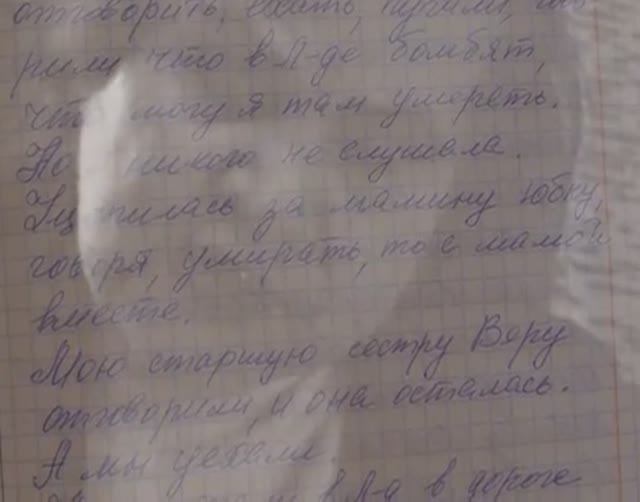 отговорить, ехать, пугали, гово
рили что в Л-де бомбят,
что могу я там умереть.
Но никого не слушала.
Уцепилась за мамину юбку,
говоря, умирать, то с мамой
вместе.
Мою старшую сестру Веру
отговорили, и она осталась.
А мы уехали.
в Л-д в дороге